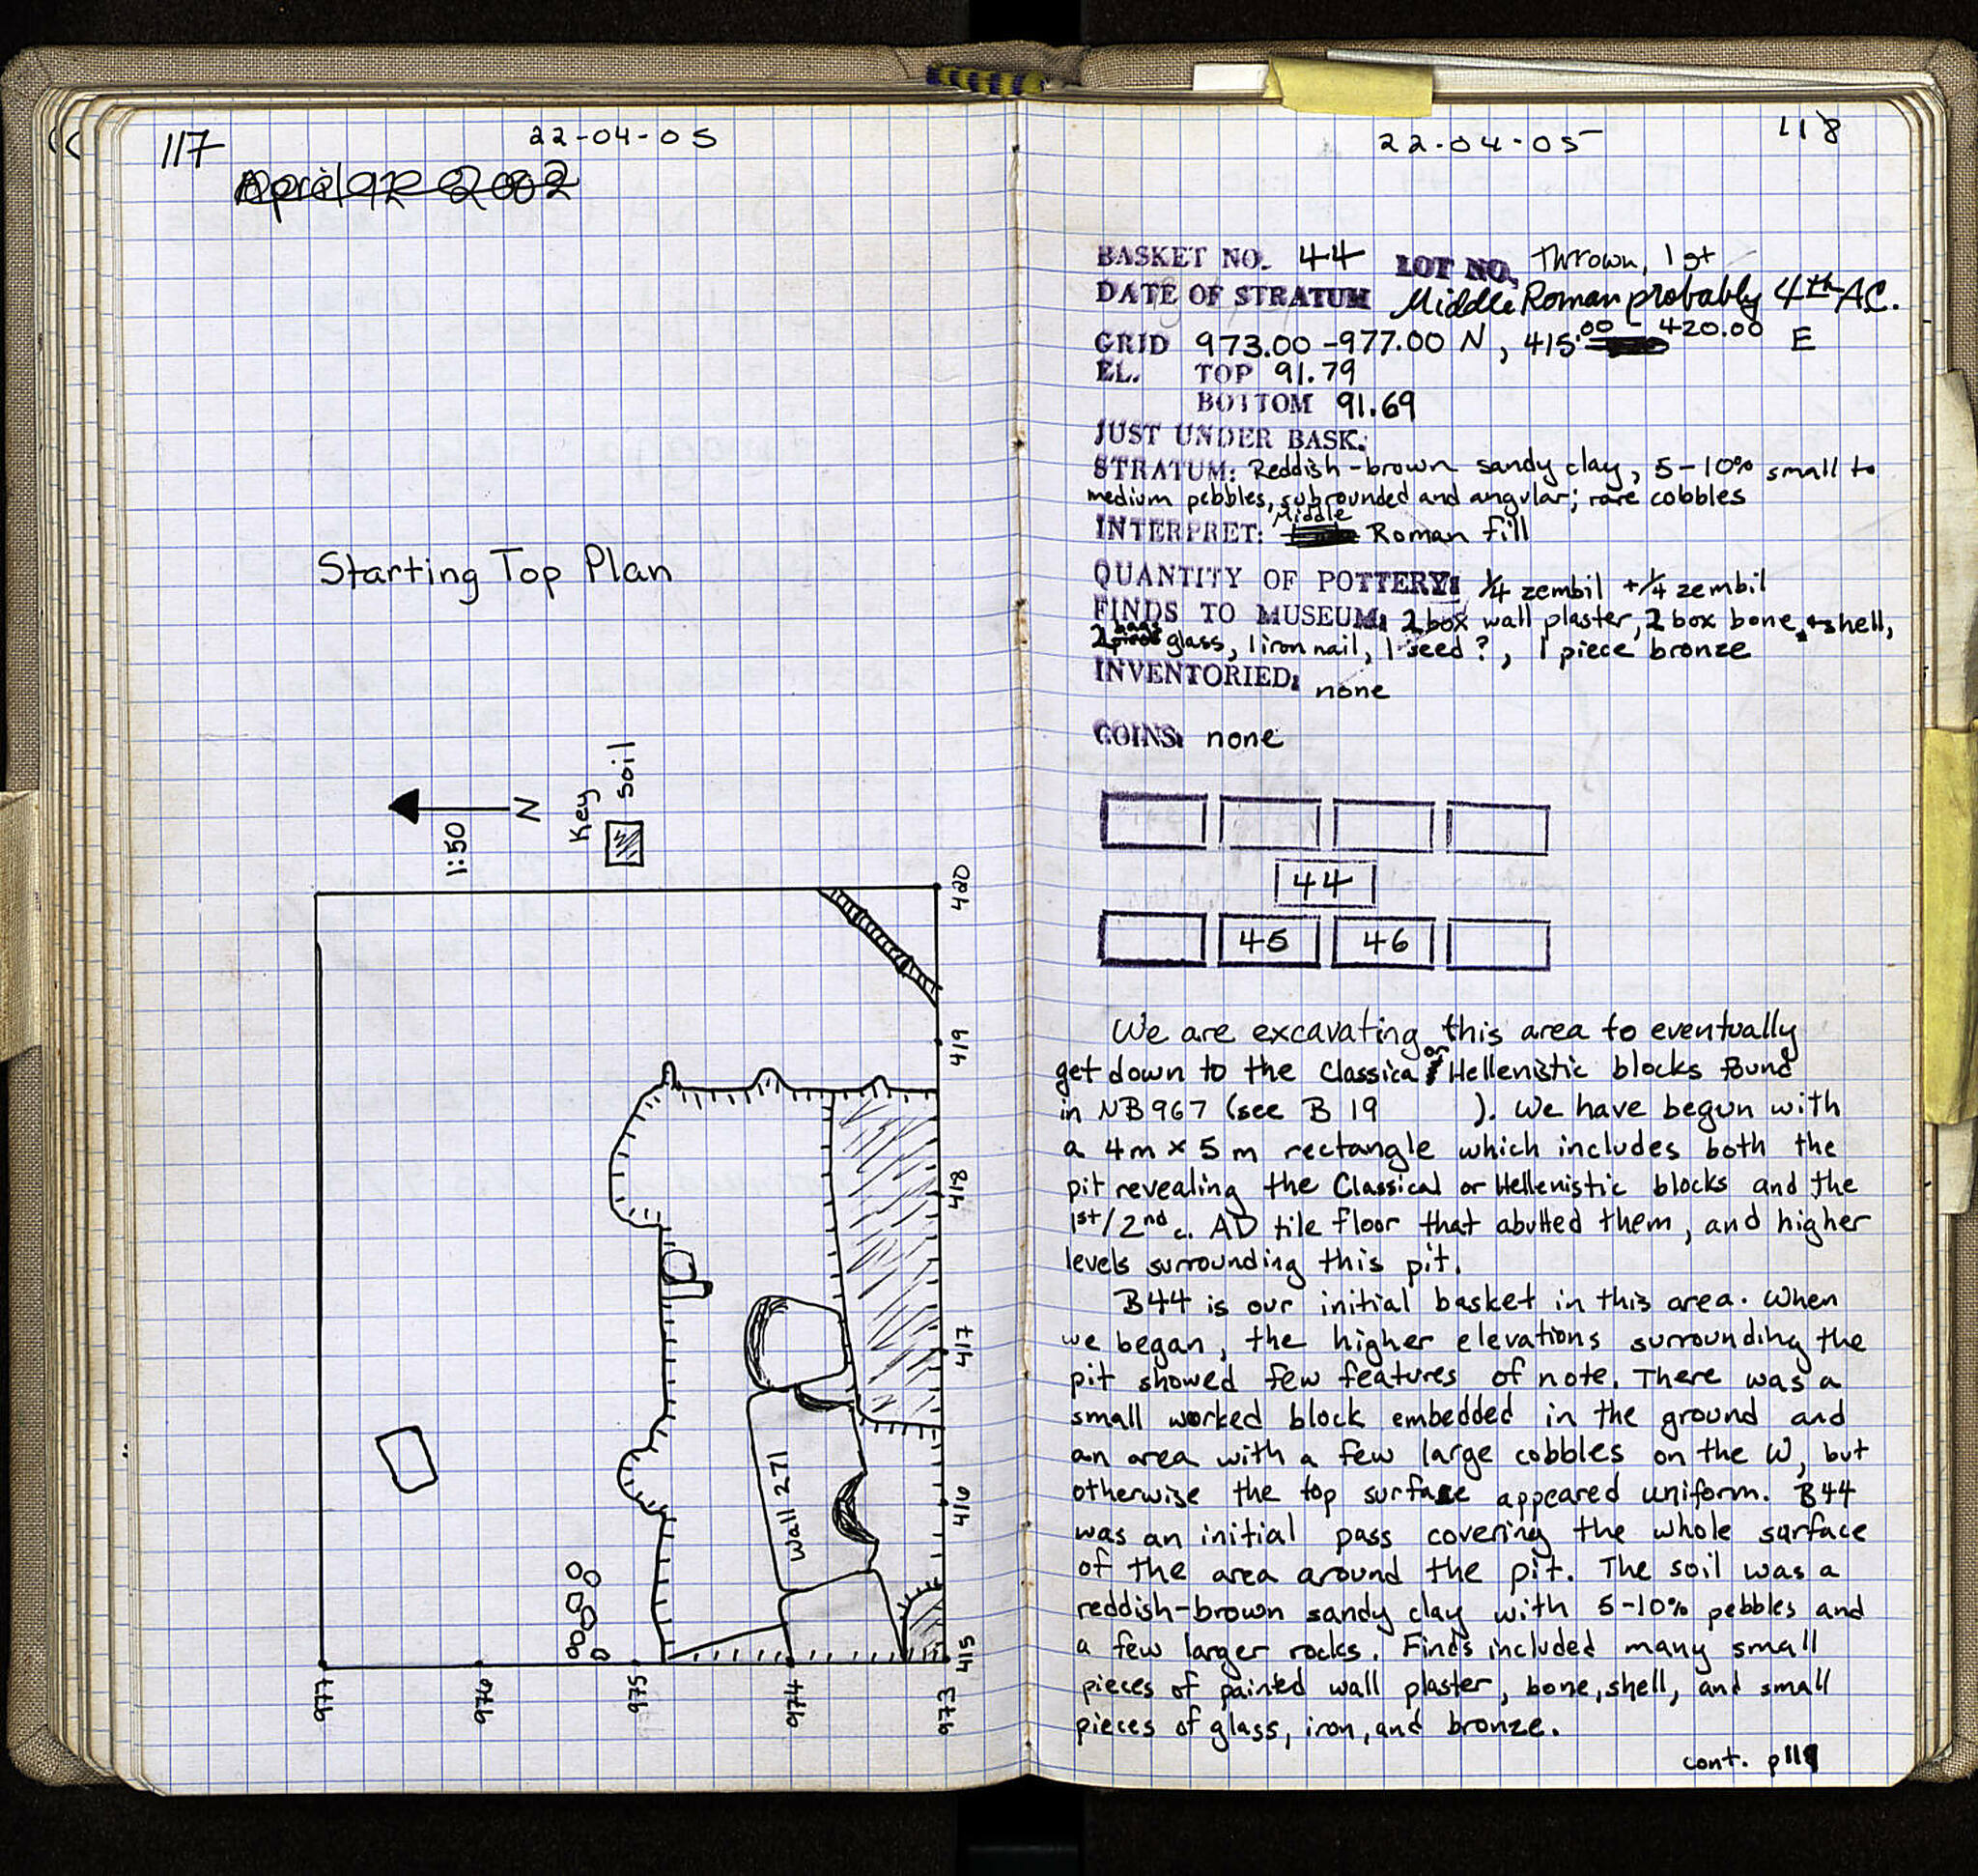 117
22-04-05
Starting Top Plan
N
1:50
Key
soil
420
419
418
417
416
415
977
976
975
974
973
Wall 271
22-04-05
118
BASKET NO. 44 LOT NO. Thrown, 1st
DATE OF STRATUM Middle Roman probably 4th AC.
GRID 973.00-977.00 N, 415.00 - 420.00 E
EL. TOP 91.79
BOTTOM 91.69
JUST UNDER BASK:
STRATUM: Reddish-brown sandy clay, 5-10% small to
medium pebbles, subrounded and angular; rare cobbles
INTERPRET: Middle Roman fill
QUANTITY OF POTTERY: 1/4 zembil + 1/4 zembil
FINDS TO MUSEUM: 2 box wall plaster, 2 box bone + shell,
2 bags glass, 1 iron nail, 1 seed?, 1 piece bronze
INVENTORIED: none
COINS: none
44
45 46
We are excavating this area to eventually
get down to the Classical or Hellenistic blocks found
in NB967 (see B 19 ). We have begun with
a 4m x 5m rectangle which includes both the
pit revealing the Classical or Hellenistic blocks and the
1st/2nd c. AD tile floor that abutted them, and higher
levels surrounding this pit.
B44 is our initial basket in this area. When
we began, the higher elevations surrounding the
pit showed few features of note. There was a
small worked block embedded in the ground and
an area with a few large cobbles on the W, but
otherwise the top surface appeared uniform. B44
was an initial pass covering the whole surface
of the area around the pit. The soil was a
reddish-brown sandy clay with 5-10% pebbles and
a few larger rocks. Finds included many small
pieces of painted wall plaster, bone, shell, and small
pieces of glass, iron, and bronze.
cont. p119